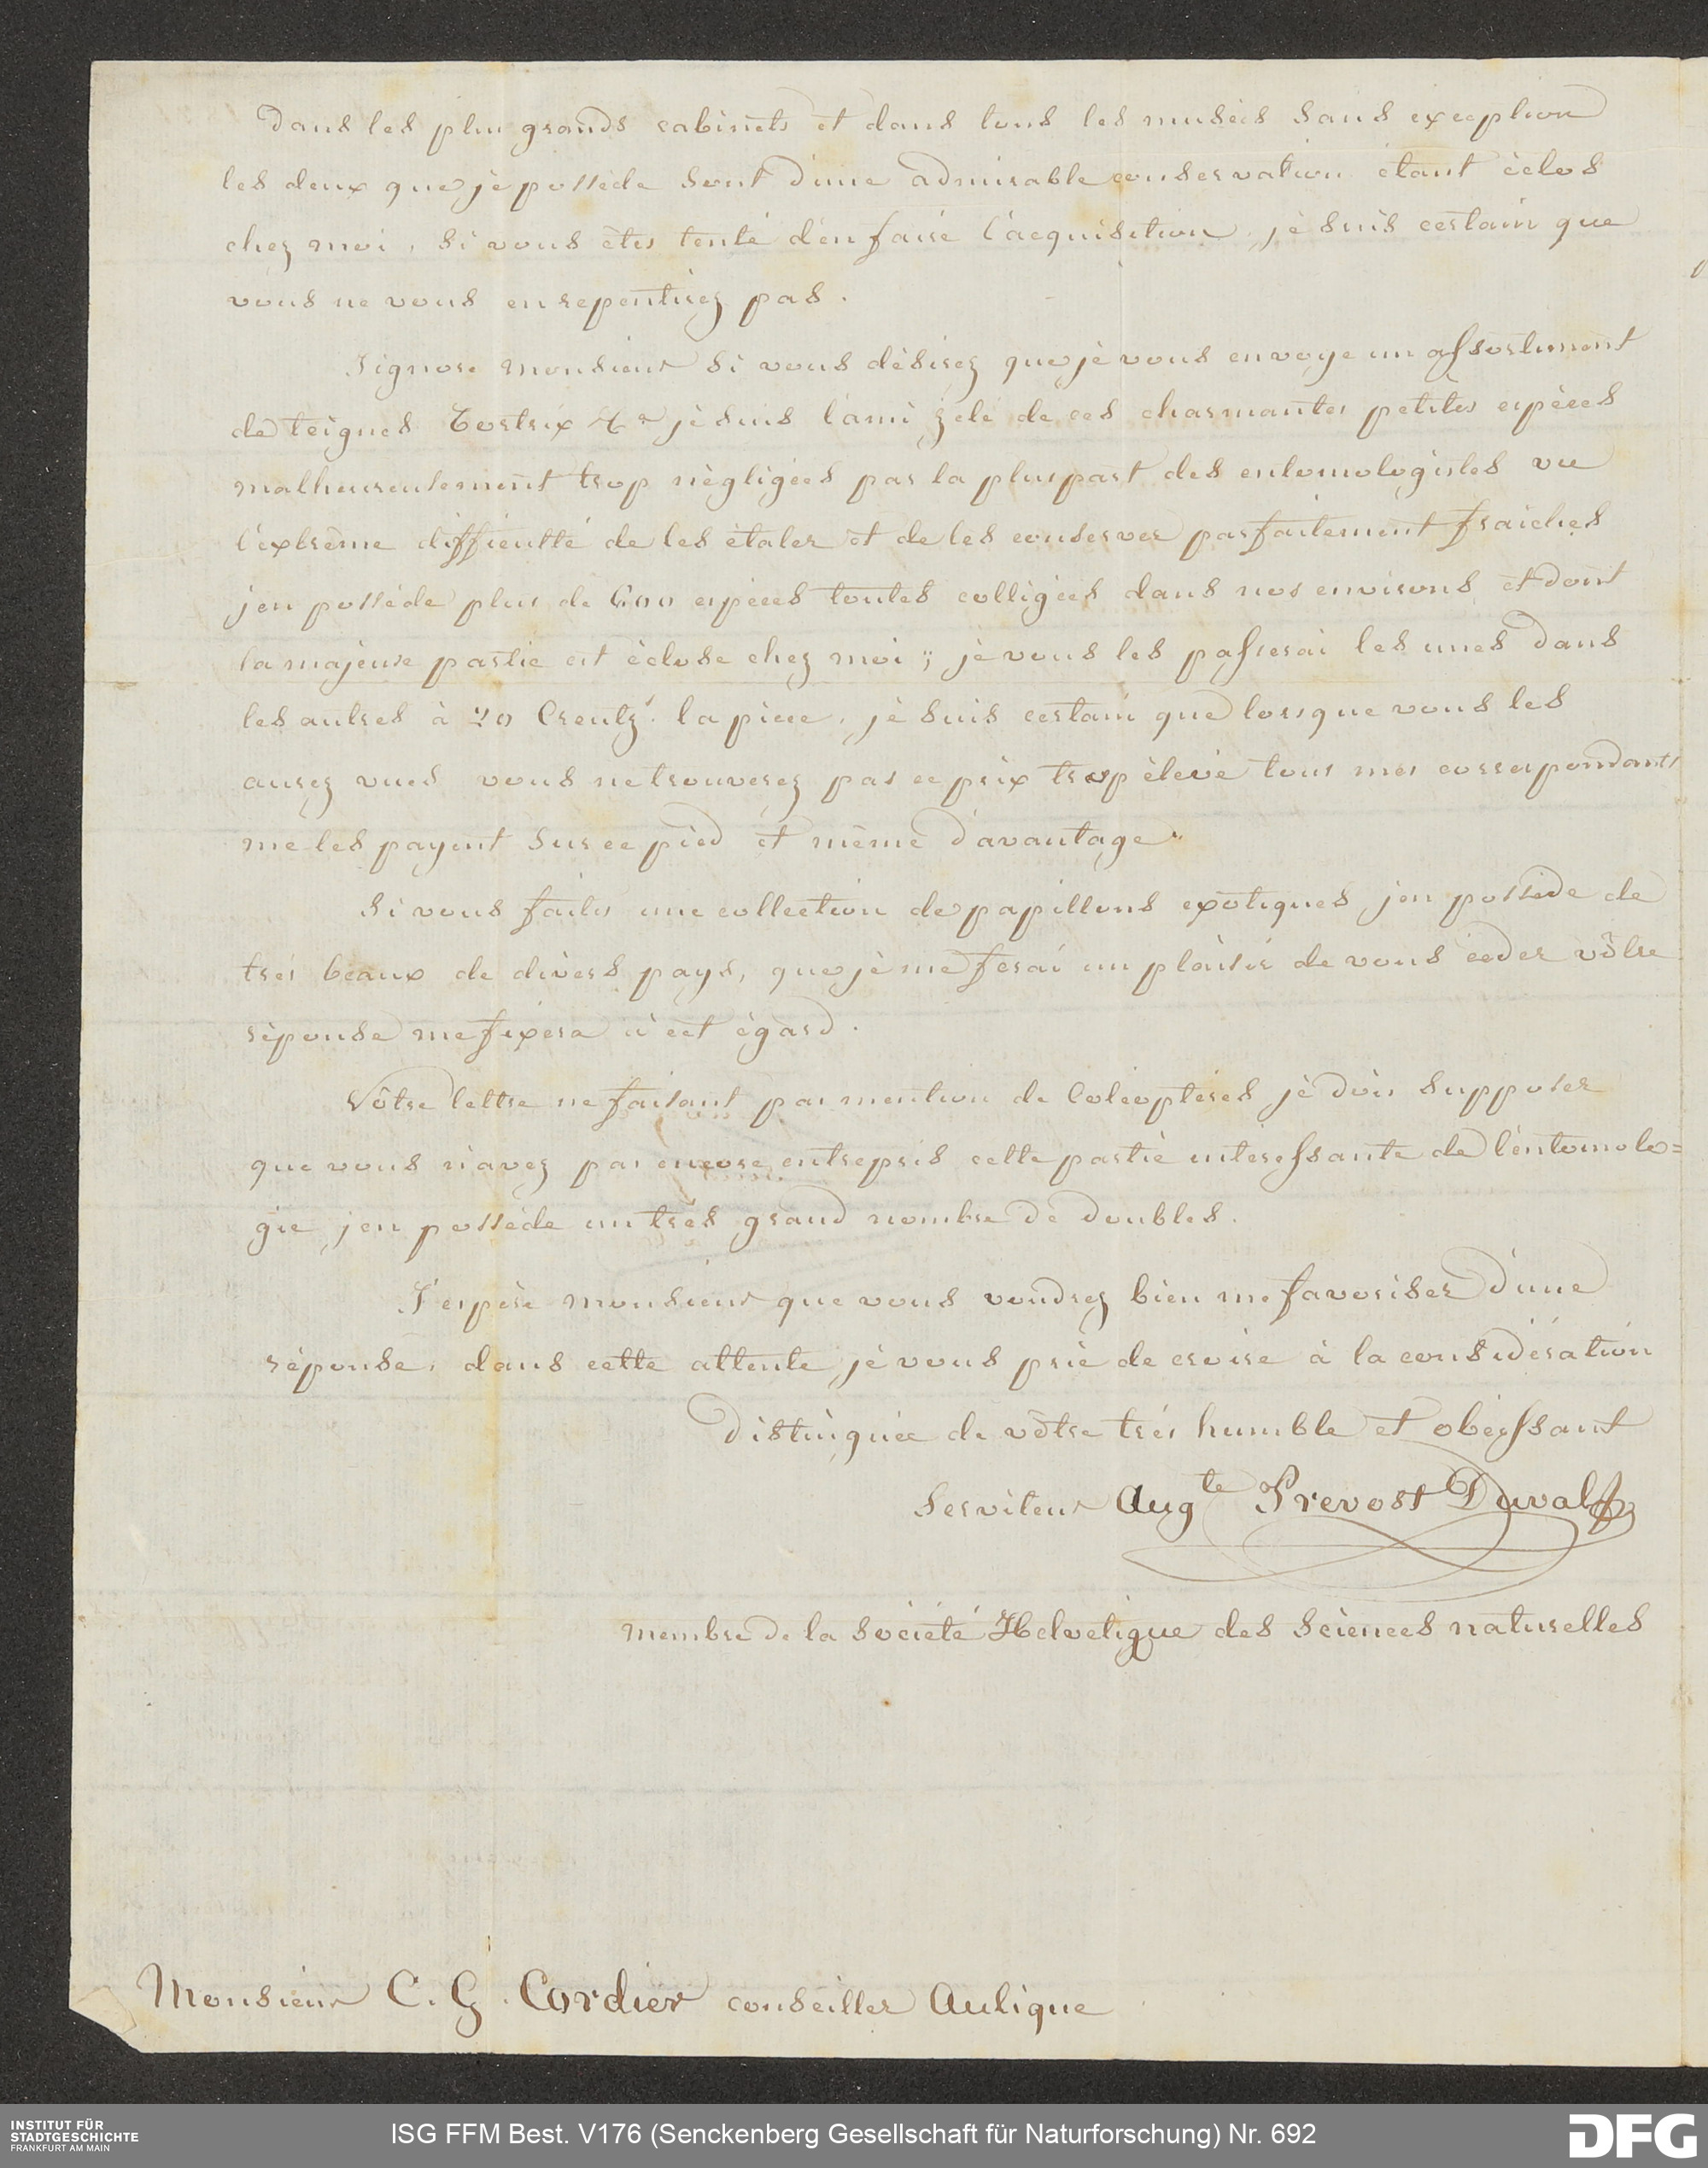 dans les plus grands cabinets et dans tous les musées sans exception
les deux que je possède sont d'une admirable conservation étant éclos
chez moi, si vous êtes tenté d'en faire l'acquisition, je suis certain que
vous ne vous en repentirez pas.
J'ignore monsieur si vous désirez que je vous envoye un assortiment
de teignes Tortrix &a je suis l'ami zelé de ces charmantes petites espèces
malheureusement trop négligées par la pluspart des entomologistes vu
l'extrême difficulté de les étaler et de les conserver parfaitement fraiches
j'en possède plus de 600 espèces toutes colligées dans nos environs et dont
la majeure partie est éclose chez moi; je vous les passerai les unes dans
les autres à 20 Creutz. la piece, je suis certain que lorsque vous les
aurez vues vous ne trouverez pas ce prix trop élevé tous mes correspondants
me les payent sur ce pied et même d'avantage.
Si vous faites une collection de papillons exotiques j'en possède de
très beaux de divers pays, que je me ferai un plaisir de vous céder vôtre
réponse me fixera à cet égard.
Vôtre lettre ne faisant pas mention de Coléoptères je dois supposer
que vous n'avez pas encore entrepris cette partie interessante de l'entomolo=
gie j'en possède un très grand nombre de doubles.
J'espère monsieur que vous voudrez bien me favoriser d'une
réponse, dans cette attente je vous prie de croire à la considération
distinguée de vôtre très humble et obéissant
Serviteur Augte Prevost Duval
membre de la société Helvetique des Sciences naturelles
Monsieur C. G. Cordier conseiller Aulique
INSTITUT FÜR
STADTGESCHICHTE
FRANKFURT AM MAIN
ISG FFM Best. V176 (Senckenberg Gesellschaft für Naturforschung) Nr. 692
DFG